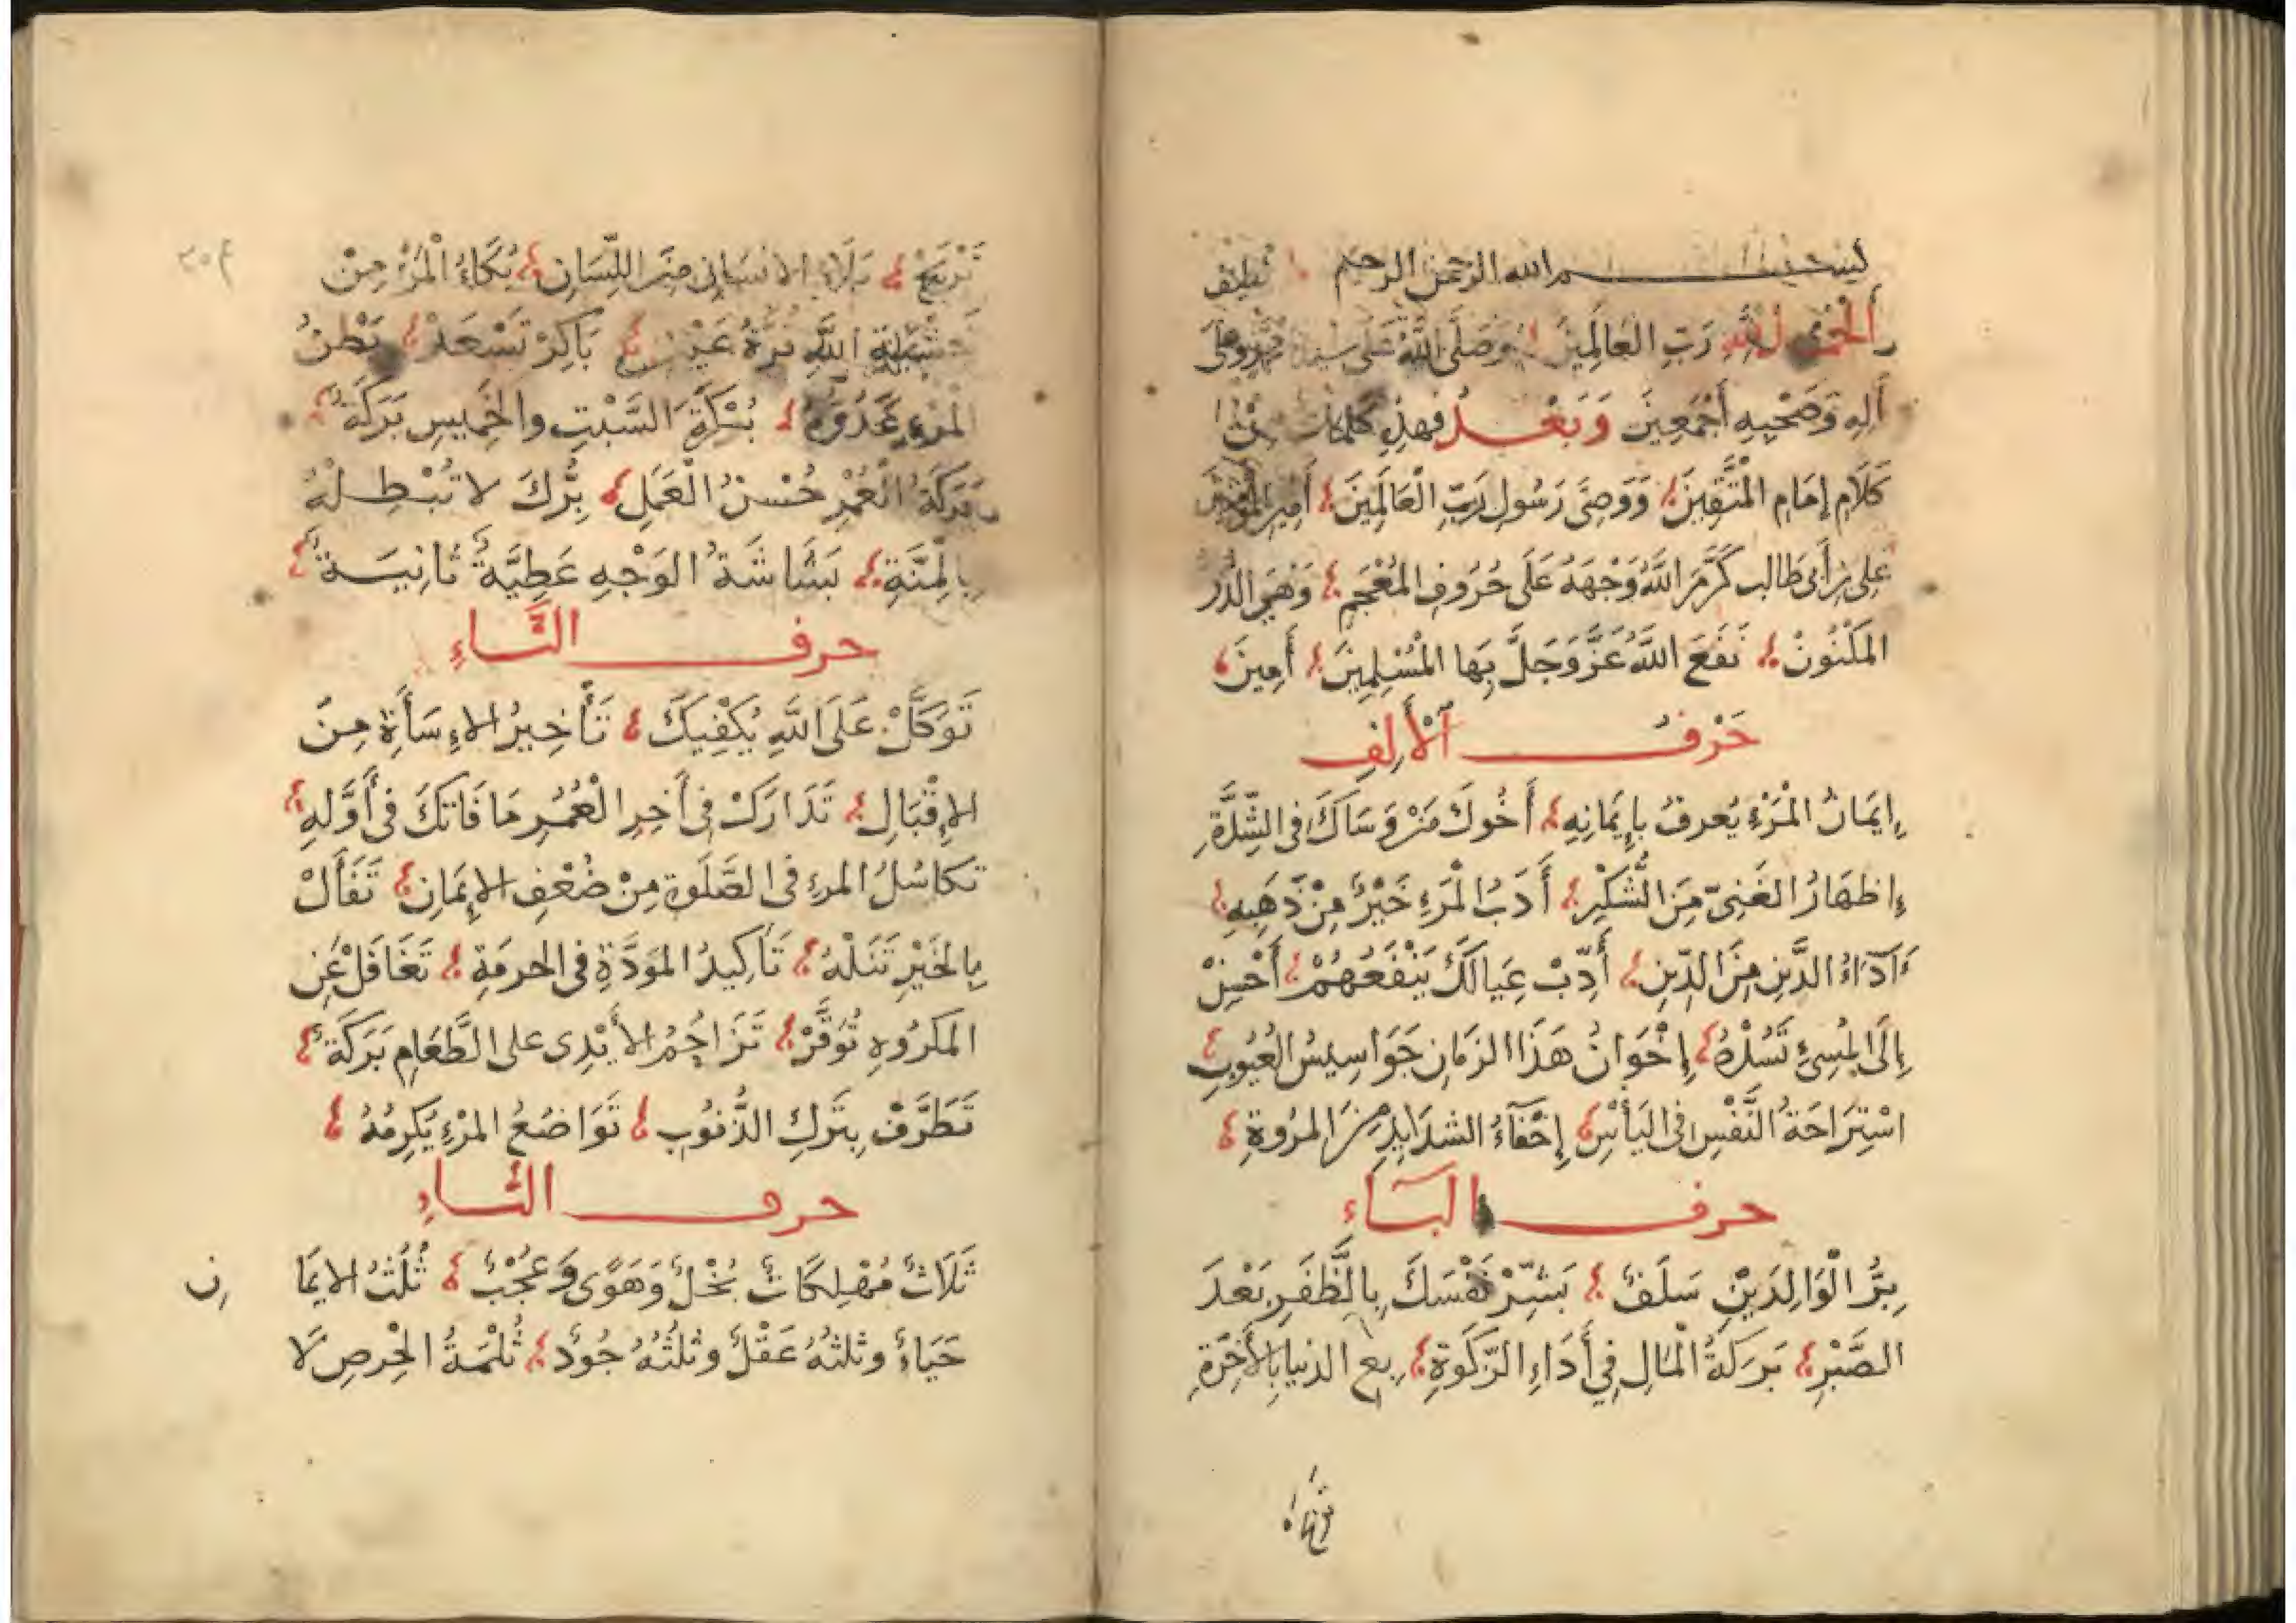 بسم الله الرحمن الرحيم
الْحَمْدُ لِلَّهِ رَبِّ العَالَمِينَ وَصَلَّى اللَّهُ عَلَى سيدنا محمد وعلى
آلِهِ وَصَحْبِهِ أَجْمَعِينَ وَبَعْدُ فهذِهِ كلمات مِنْ
كَلَامِ إِمَامِ الْمُتَّقِينَ وَوَصِيِّ رَسُولِ رَبِّ الْعَالَمِينَ أَمِيرِ الْمُؤْمِنِينَ
عَلِي بْنِ أَبِي طَالِب كَرَّمَ اللَّهُ وَجْهَهُ عَلَى حُرُوفِ الْمُعْجَمِ وَهِيَ الدُّرُّ
الْمَكْنُونْ نَفَعَ اللَّهُ عَزَّ وَجَلَّ بِهَا الْمُسْلِمِينَ أَمِينَ
حَرْفُ الْأَلِفِ
إِيمَانُ الْمَرْءِ يُعرفُ بِإِيمَانِهِ أَخُوكَ مَنْ وَسَاكَ فِي الشِّدَّةِ
إِظهَارُ الغَنِيِّ مِنَ الشُّكْرِ أَدَبُ الْمَرْءِ خَيْرٌ مِنْ ذَهَبِهِ
أَدَآءُ الدَّيْنِ مِنَ الدِّينِ أَدِّبْ عِيَالَكَ يَنْفَعُهُمْ أَحْسِنْ
إِلَى الْمُسِئِ تَسُدْهُ إِخْوَانُ هَذَا الزمَانِ جَوَاسِيسُ العُيُوبِ
اسْتِرَاحَةُ النَّفْسِ فِي اليَأْسِ إِخْفَآءُ الشدَايِدِ مِنَ الْمرُوةِ
حرف البَاءِ
بِرُّ الْوَالِدَيْنِ سَلَفٌ بَشِّرْ نَفْسَكَ بِالظَّفَرِ بَعْدَ
الصَّبْرِ بَرَكَةُ الْمَالِ فِي أَدَاءِ الزَّكَوةِ بِع الدنيا بِالأَخِرَةِ
تَرْبَحْ بَلَاءُ الانسَانِ مِنَ اللِّسَانِ بُكَاءُ الْمَرْءِ مِنْ
خَشْيَةِ اللَّهِ قُرَّةُ عَيْنٍ بَاكِرْ تَسْعَدْ بَطْنُ
الْمَرْءِ عَدُوُّهُ بُكْرَةُ السَّبْتِ والخَمِيسِ بَرَكَةٌ
بَرَكَةُ الْعُمْرِ حُسْنُ الْعَمَلِ بِرُّكَ لا تُبْطِلْهُ
بِالْمِنَّةِ بَشَاشَةُ الوَجْهِ عَطِيَّةٌ ثَانِيَةٌ
حرف التَّاءِ
تَوَكَّلْ عَلَى اللَّهِ يَكْفِيكَ تَأْخِيرُ الاِسَأَةِ مِنَ
الإِقْبَالِ تَدَارَكْ فِي أَخِرِ الْعُمُرِ مَا فَاتَكَ فِي أَوَّلِهِ
تَكَاسُلُ المرءِ فِي الصَّلَوةِ مِنْ ضُعْفِ الاِيمَانِ تَفَأَلْ
بِالْخَيْرِ تَنَلْهُ تَأْكِيدُ المَوَدَّةِ فِي الحرمَةِ تَغَافَلْ عَنِ
الْمَكْرُوهِ تُوَقَّرْ تَزَاحُمُ الأَيْدِي على الطَّعَامِ بَرَكَةٌ
تَطَرَّفْ بِتَرْكِ الذُّنُوبِ تَوَاضُعُ المَرْءِ يُكْرِمُهُ
حرف الثاءِ
ثَلَاثٌ مُهْلِكَاتٌ بُخْلٌ وَهَوًى وَعُجْبٌ ثُلُثُ الايمَانِ
حَيَاءٌ وثلثهُ عَقْلٌ وثُلُثُهُ جُودٌ ثُلْمَةُ الْحِرصِ لَا